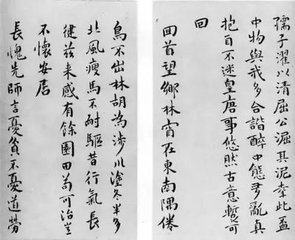 孺子濯以清屈公淈其泥幸此盃
中物與我多合諧醉中態雖亂真
抱自不迷皇唐事悠然古意暫可
回
回首望鄉林在東南隅倦
鳥不出林胡為涉川塗冬半多
北風瘦馬不耐驅昔行氣長
健茲來感有餘園田苟可治豈
不懷安居
長愧先師言憂貧不憂道勞